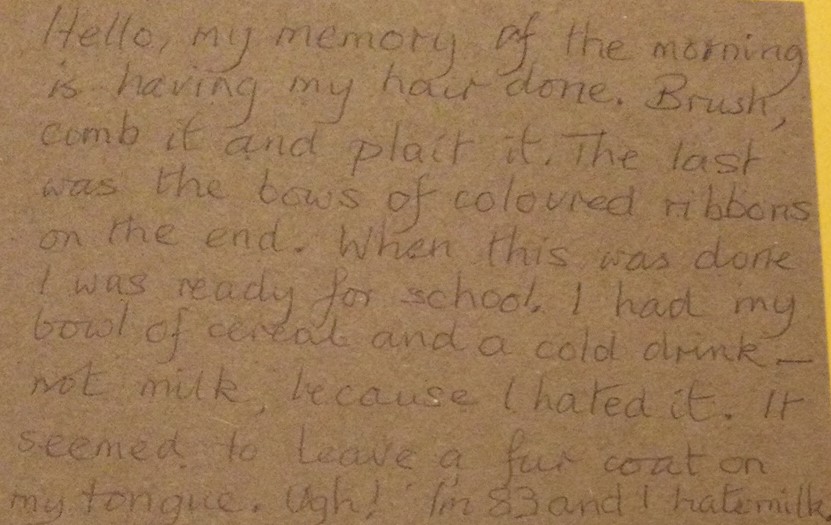 Hello, my memory of the morning
is having my hair done. Brush,
comb it and plait it. The last
was the bows of coloured ribbons
on the end. When this was done
I was ready for school. I had my
bowl of cereal and a cold drink –
not milk, because I hated it. It
seemed to leave a fur coat on
my tongue. Ugh! I'm 83 and I hate milk